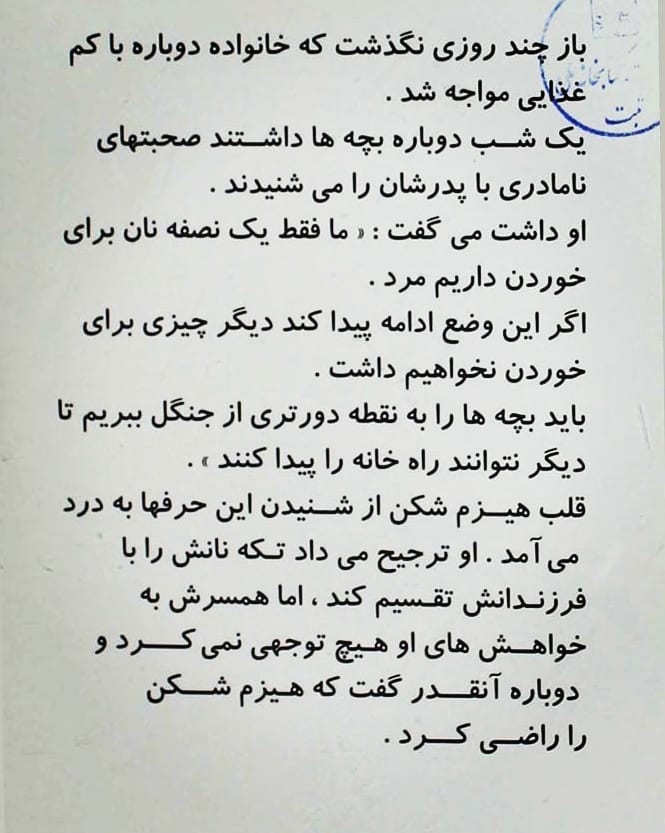 باز چند روزی نگذشت که خانواده دوباره با کم
غذایی مواجه شد .
یک شب دوباره بچه ها داشتند صحبتهای
نامادری با پدرشان را می شنیدند .
او داشت می گفت : « ما فقط یک نصفه نان برای
خوردن داریم مرد .
اگر این وضع ادامه پیدا کند دیگر چیزی برای
خوردن نخواهیم داشت .
باید بچه ها را به نقطه دورتری از جنگل ببریم تا
دیگر نتوانند راه خانه را پیدا کنند » .
قلب هیزم شکن از شنیدن این حرفها به درد
می آمد . او ترجیح می داد تکه نانش را با
فرزندانش تقسیم کند ، اما همسرش به
خواهش های او هیچ توجهی نمی کرد و
دوباره آنقدر گفت که هیزم شکن
را راضی کرد .
ثبت